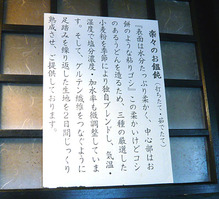 楽人のお饂飩(打ちたて・茹でたて)
『表面は水分たっぷり柔かく、中心部はお
餅のような粘りゴシ』この柔かいけどコシ
のあるうどんを造るため、三種の厳選した
小麦粉を季節により独自ブレンドし、気温・
湿度で塩分濃度・加水率も微調整していま
す。そして、グルテン繊維をつなぐように
足踏みを繰り返した生地を2日間じっくり
熟成させ、ご提供しております。